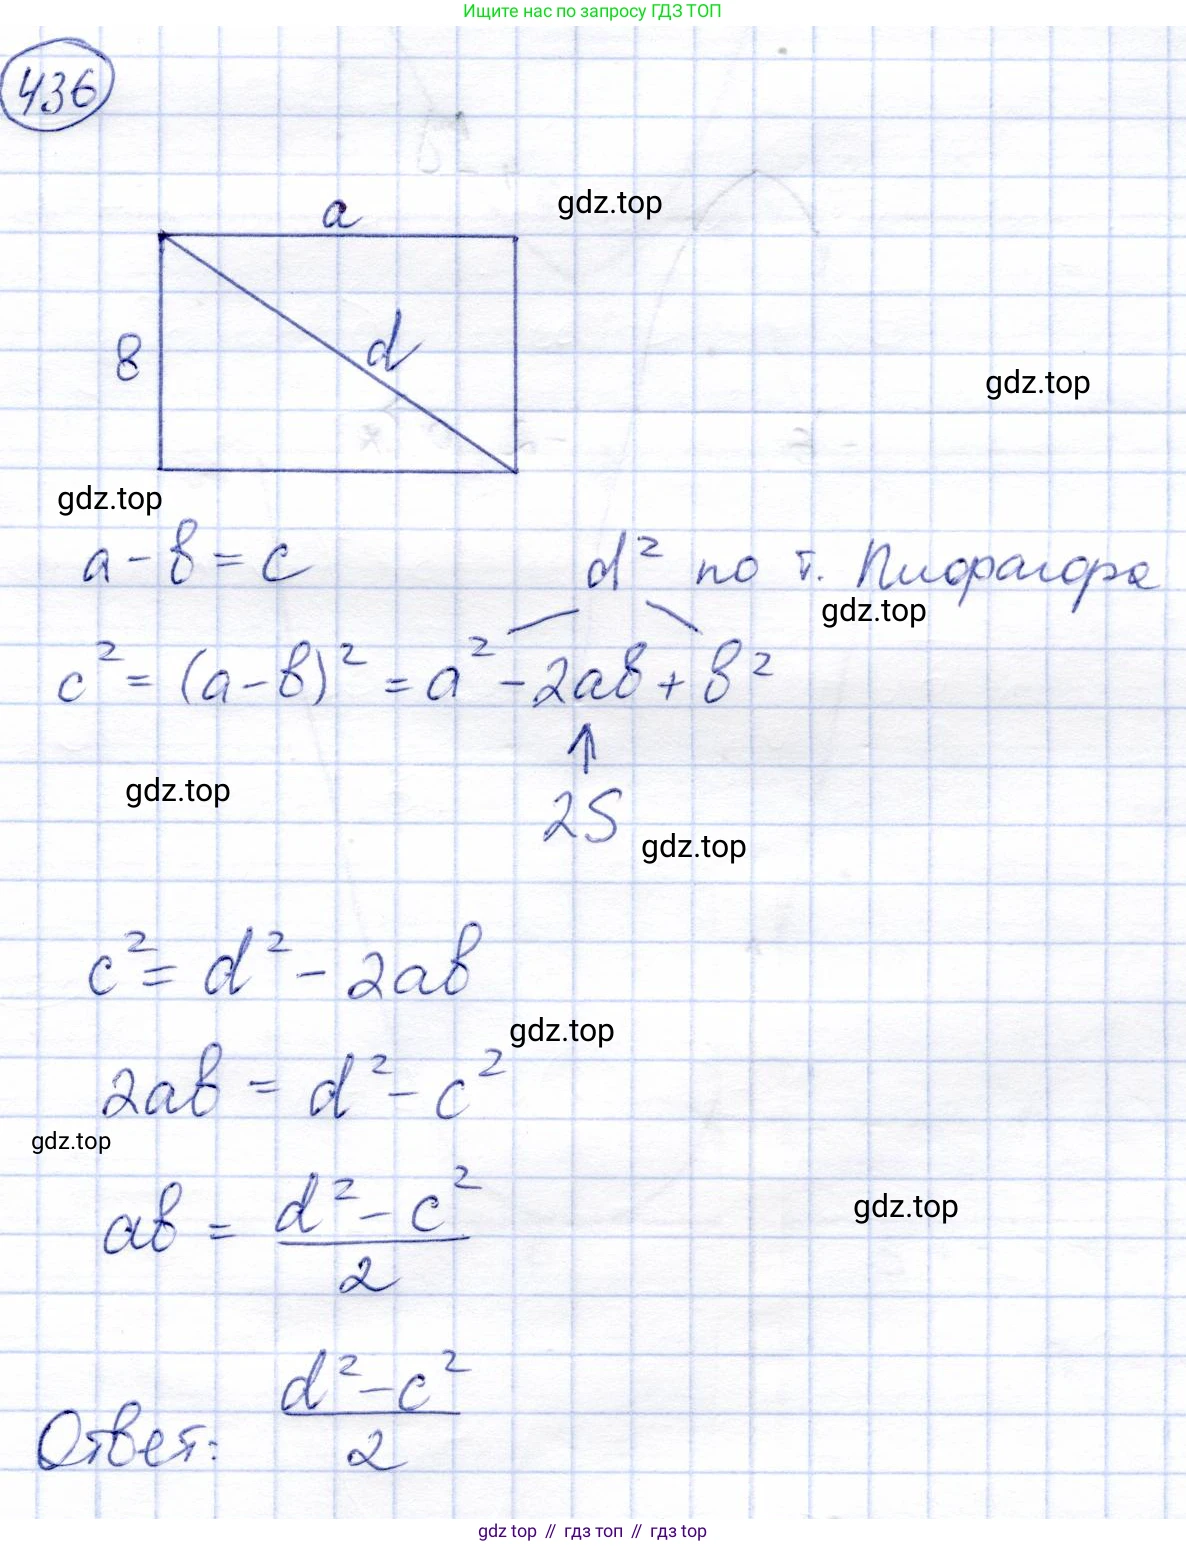 Ищите нас по запросу ГДЗ ТОП
436
a
gdz.top
d
в
gdz.top
gdz.top
a - в = c
d² по т. Пифагора
gdz.top
c² = (a - в)² = a² - 2aв + в²
↑
gdz.top
2S
gdz.top
c² = d² - 2aв
gdz.top
2aв = d² - c²
gdz.top
aв = (d² - c²)/2
gdz.top
Ответ: (d² - c²)/2
gdz top // гдз топ // гдз top